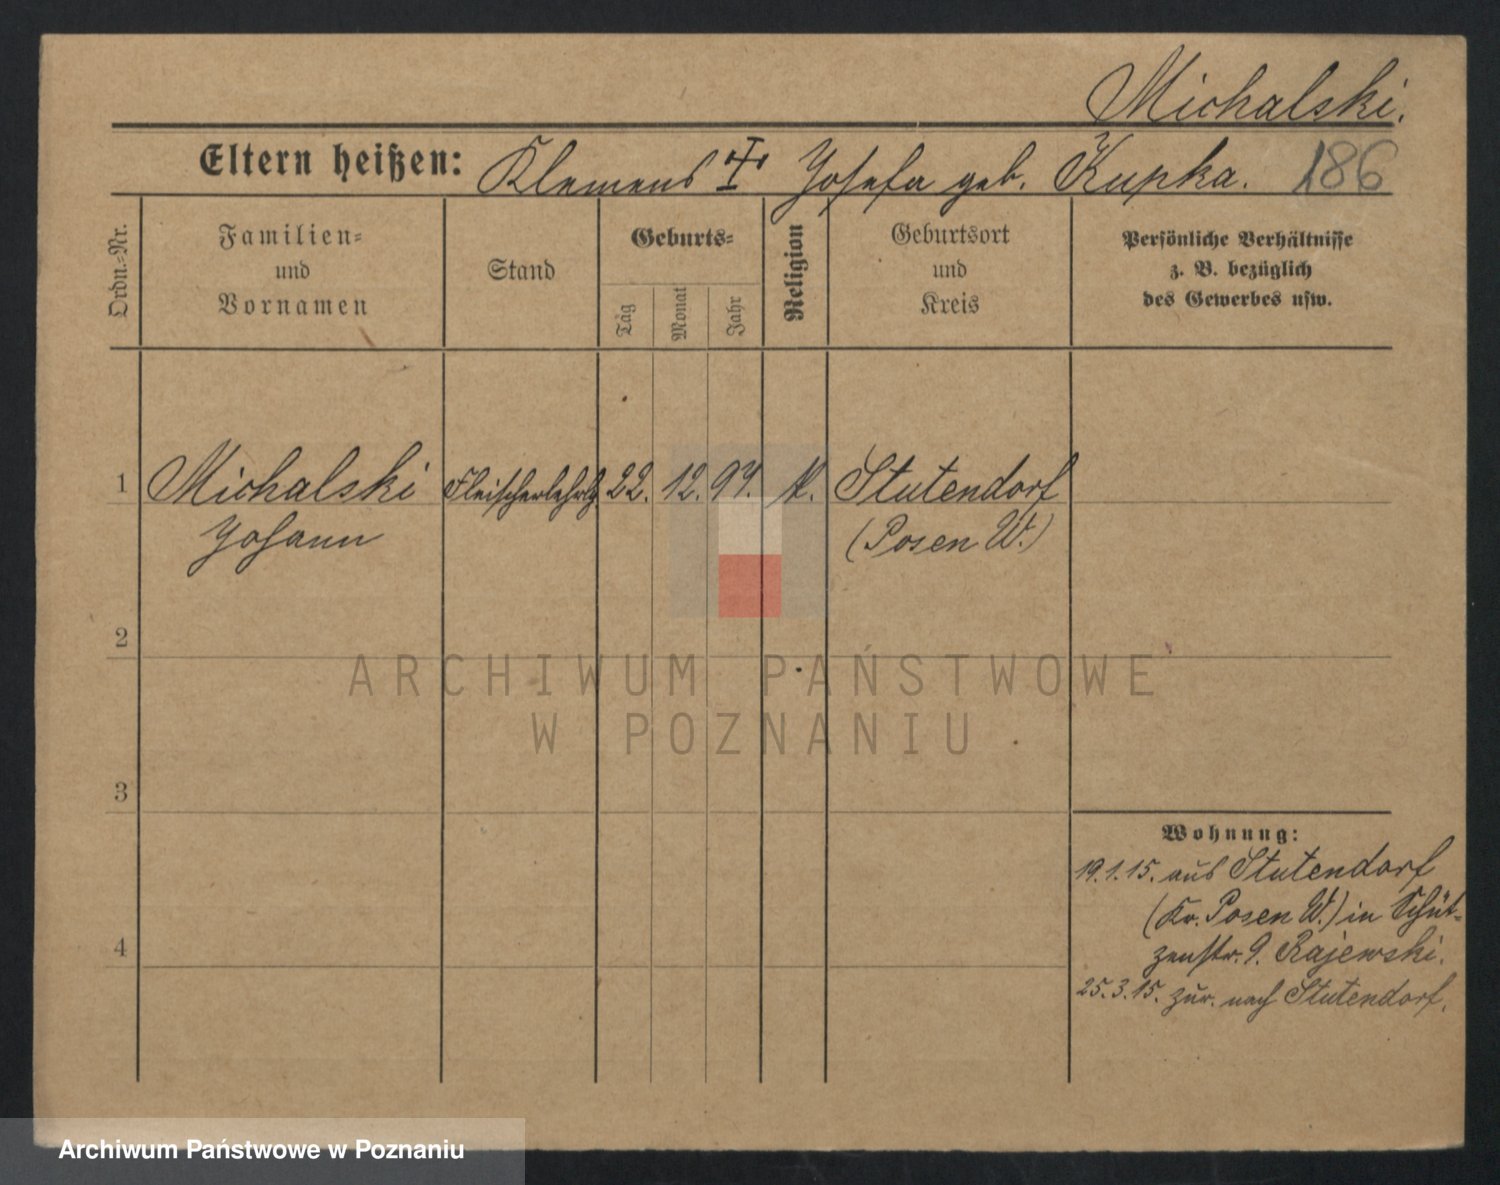 Michalski.
Eltern heißen: Klemens Josefa geb. Kupka. 186
Ordn.-Nr.
Familien-
und
Vornamen
Stand
Geburts-
Tag
Monat
Jahr
Religion
Geburtsort
und
Kreis
Persönliche Verhältnisse
z. B. bezüglich
des Gewerbes usw.
1 Michalski Fleischerlehrlg. 22. 12. 97. k. Stutendorf
Johann (Posen W.)
2
ARCHIWUM PAŃSTWOWE
W POZNANIU
3
Wohnung:
19.1.15. aus Stutendorf
(Kr. Posen W.) in Schüt-
4
zenstr. 9. Rajewski.
25.3.15. zur. nach Stutendorf.
Archiwum Państwowe w Poznaniu